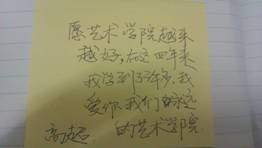 愿艺术学院越来
越好,在这四年来
我学到了许多,我
爱你我们的永远
的艺术学院